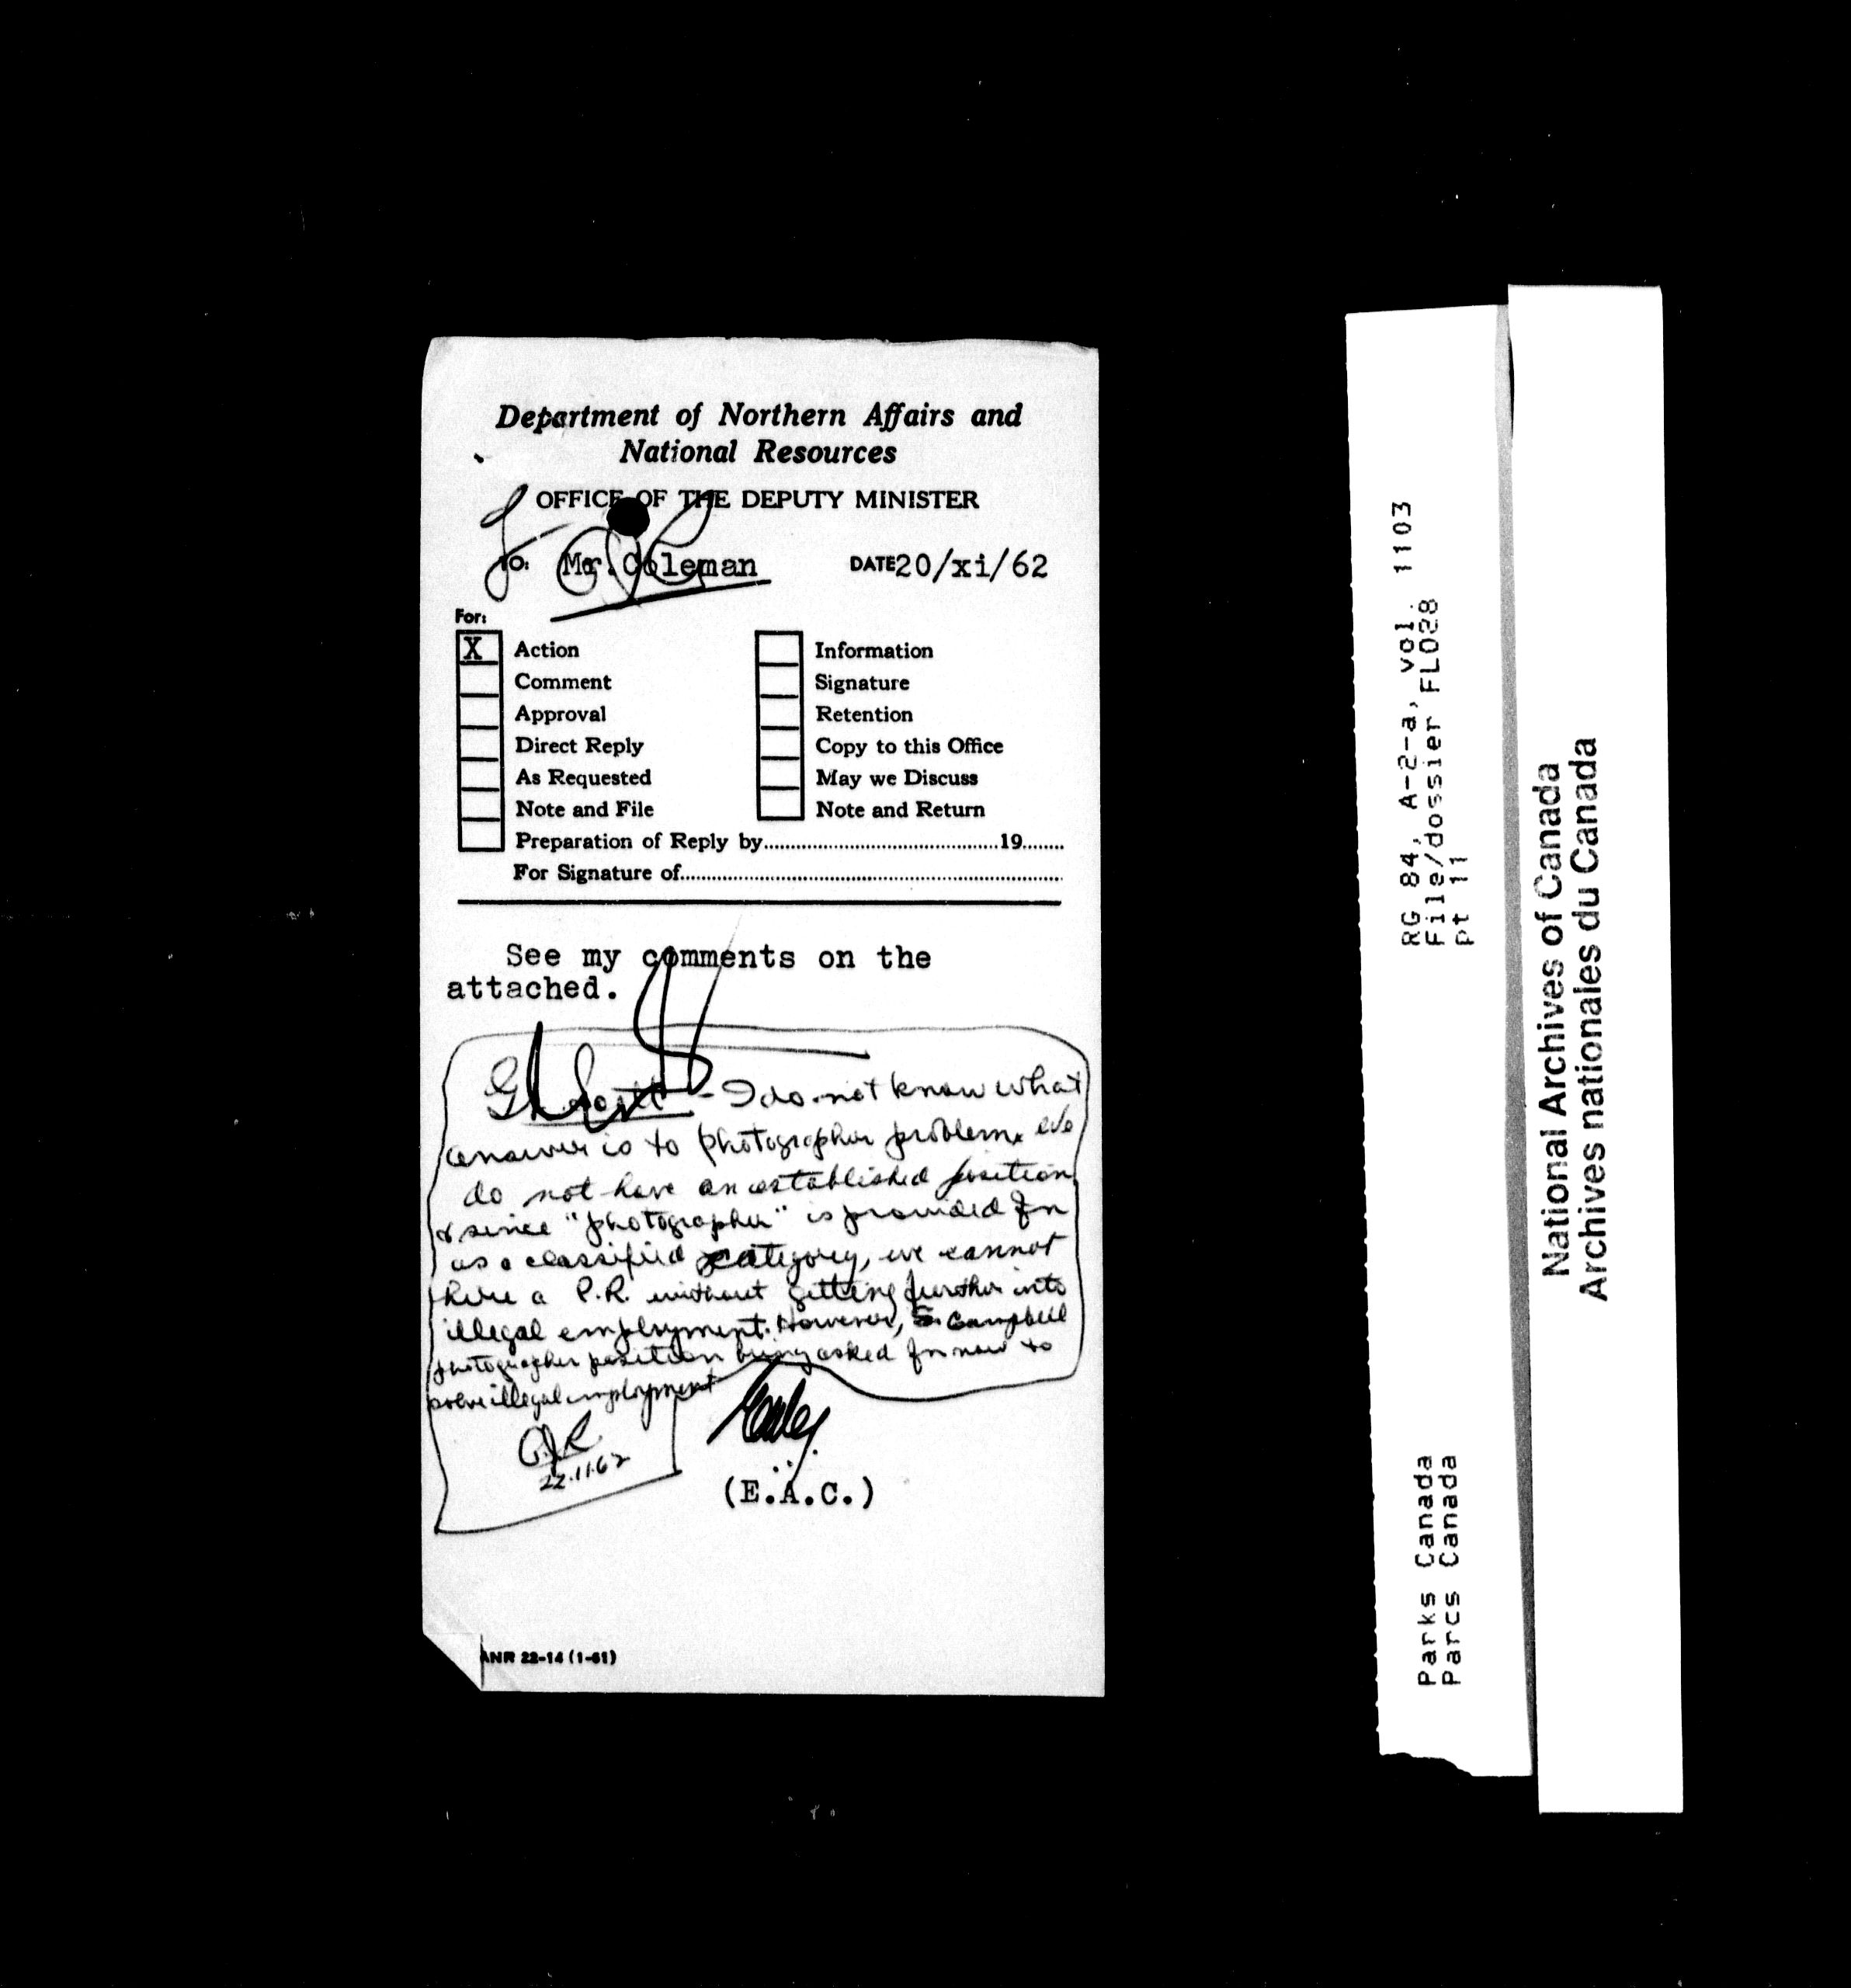 Department of Northern Affairs and
National Resources
OFFICE OF THE DEPUTY MINISTER
TO: Mr. Coleman DATE 20/xi/62
For:
X Action
Comment
Approval
Direct Reply
As Requested
Note and File
Information
Signature
Retention
Copy to this Office
May we Discuss
Note and Return
Preparation of Reply by..........19......
For Signature of..........
See my comments on the
attached.
Scott - I do not know what
answer is to photographer problem. We
do not have an established position
& since "photographer" is provided for
as a classified category, we cannot
hire a P.R. without getting further into
illegal employment. However, S. Campbell
photographer position being asked for now to
solve illegal employment
22.11.62
(E.A.C.)
ANR 22-14 (1-61)
RG 84, A-2-a, vol. 1103
File/dossier FLO28
pt 11
Parks Canada
Parcs Canada
National Archives of Canada
Archives nationales du Canada